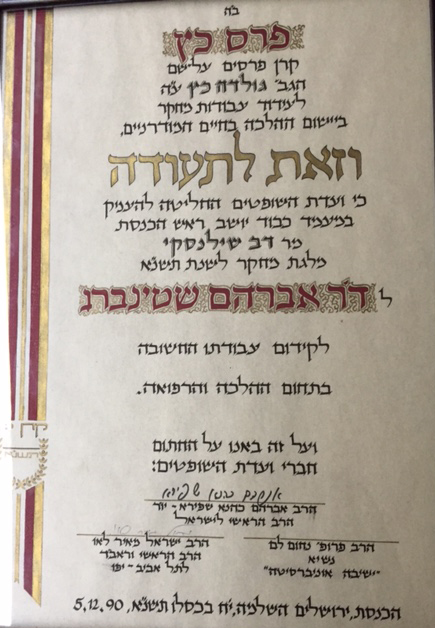 ב״ה
פרס כץ
קרן פרסים על־שם
הגב׳ גולדה כץ ע״ה
לעידוד עבודות מחקר
ביישום ההלכה בחיים המודרניים,
וזאת לתעודה
כי ועדת השופטים החליטה להעניק
במעמד כבוד יושב ראש הכנסת
מר דב שילנסקי
מלגת מחקר לשנת תשנ״א
ל ד״ר אברהם שטינברג
לקידום עבודתו החשובה
בתחום ההלכה והרפואה.
ועל זה באנו על החתום
חברי ועדת השופטים:
אברהם כהנא שפירא
הרב אברהם כהנא שפירא - יו״ר
הרב הראשי לישראל
הרב פרופ׳ נחום לם
נשיא
"ישיבה אוניברסיטה"
הרב ישראל מאיר לאו
הרב הראשי וראב״ד
לתל אביב - יפו
הכנסת, ירושלים השלמה, י״ח בכסלו תשנ״א, 5.12.90